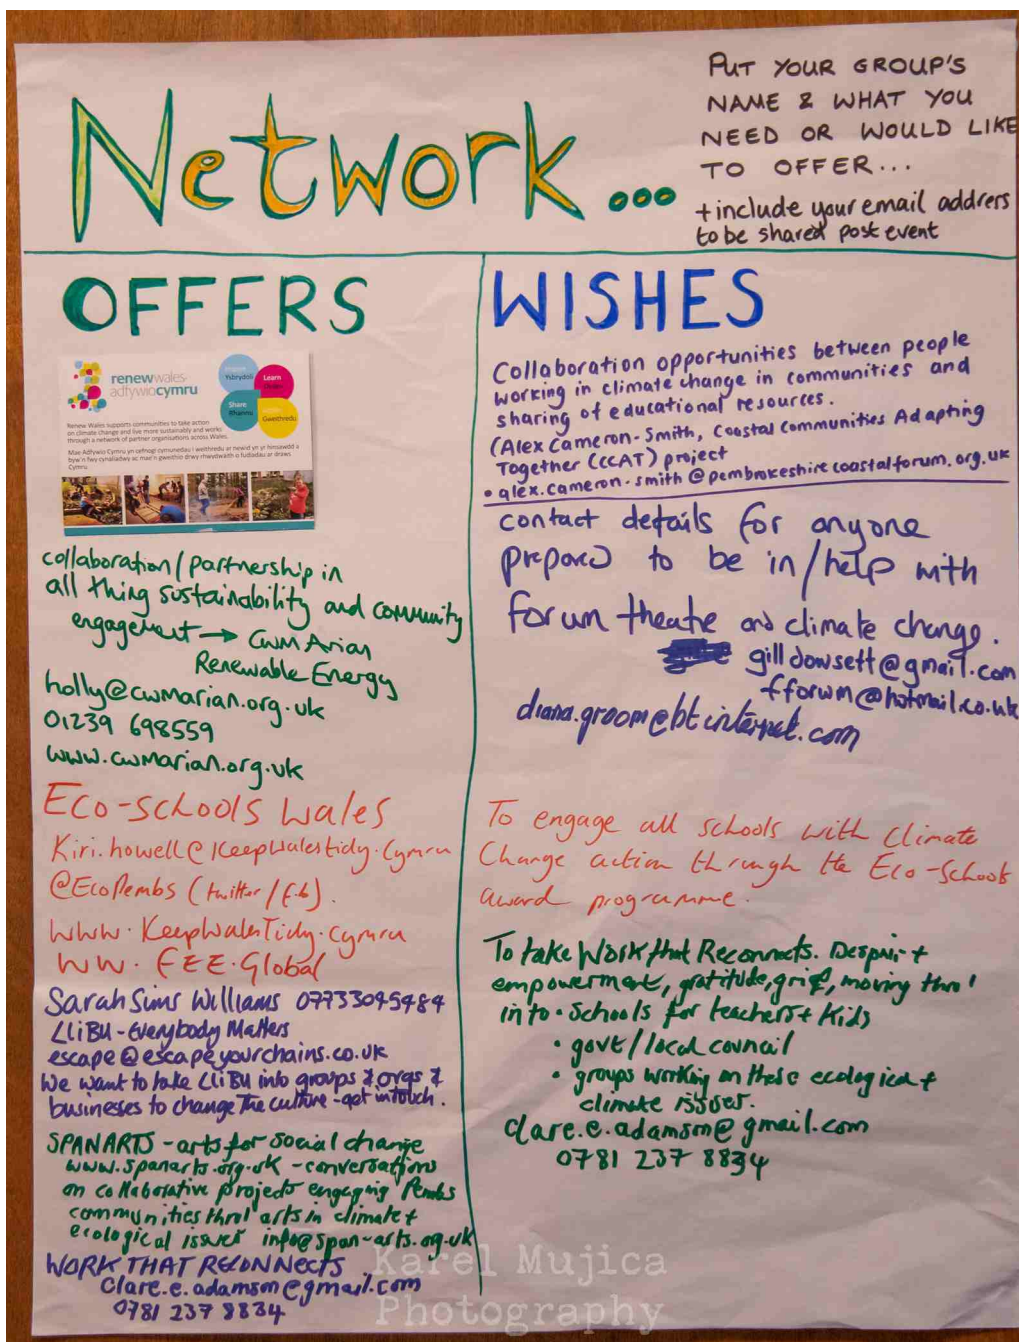 Network...
PUT YOUR GROUP'S
NAME & WHAT YOU
NEED OR WOULD LIKE
TO OFFER...
+ include your email address
to be shared post event
OFFERS
renewwales
adfywiocymru
Inspire
Ysbrydoli
Learn
Dysgu
Share
Rhannu
Gweithredu
Renew Wales supports communities to take action
on climate change and live more sustainably and works
through a network of partner organisations across Wales.
Mae Adfywio Cymru yn cefnogi cymunedau i weithredu ar newid yn yr hinsawdd a
byw'n fwy cynaliadwy ac mae'n gweithio drwy rhwydwaith o fudiadau ar draws
Cymru.
collaboration/partnership in
all thing sustainability and community
engagement → Cwm Arian
Renewable Energy
holly@cwmarian.org.uk
01239 698559
www.cwmarian.org.uk
Eco-Schools Wales
Kiri.howell@Keepwalestidy.Cymru
@EcoPembs (twitter/fb).
www.KeepWalesTidy.Cymru
WW.FEE.Global
Sarah Sims Williams 07733095484
LLiBU - Everybody Matters
escape@escapeyourchains.co.uk
We want to take LLiBU into groups & orgs &
businesses to change the culture - get in touch.
SPAN ARTS - arts for social change
www.spanarts.org.uk - conversations
on collaborative projects engaging Pembs
communities thro' arts in climate +
ecological issues info@span-arts.org.uk
WORK THAT RECONNECTS
clare.e.adamson@gmail.com
0781 237 8834
WISHES
Collaboration opportunities between people
working in climate change in communities and
sharing of educational resources.
(Alex Cameron-Smith, Coastal Communities Adapting
Together (CCAT) project
• alex.cameron-smith@pembrokeshirecoastalforum.org.uk
contact details for anyone
prepared to be in/help with
forum theatre and climate change.
gilldowsett@gmail.com
fforwm@hotmail.co.uk
diana.groom@btinternet.com
To engage all schools with Climate
Change action through the Eco-Schools
award programme.
To take Work that Reconnects. Despair +
empowerment, gratitude, grief, moving thro'
into • Schools for teachers + kids
• govt/local council
• groups working on these ecological +
climate issues.
clare.e.adamson@gmail.com
0781 237 8834
Karel Mujica
Photography